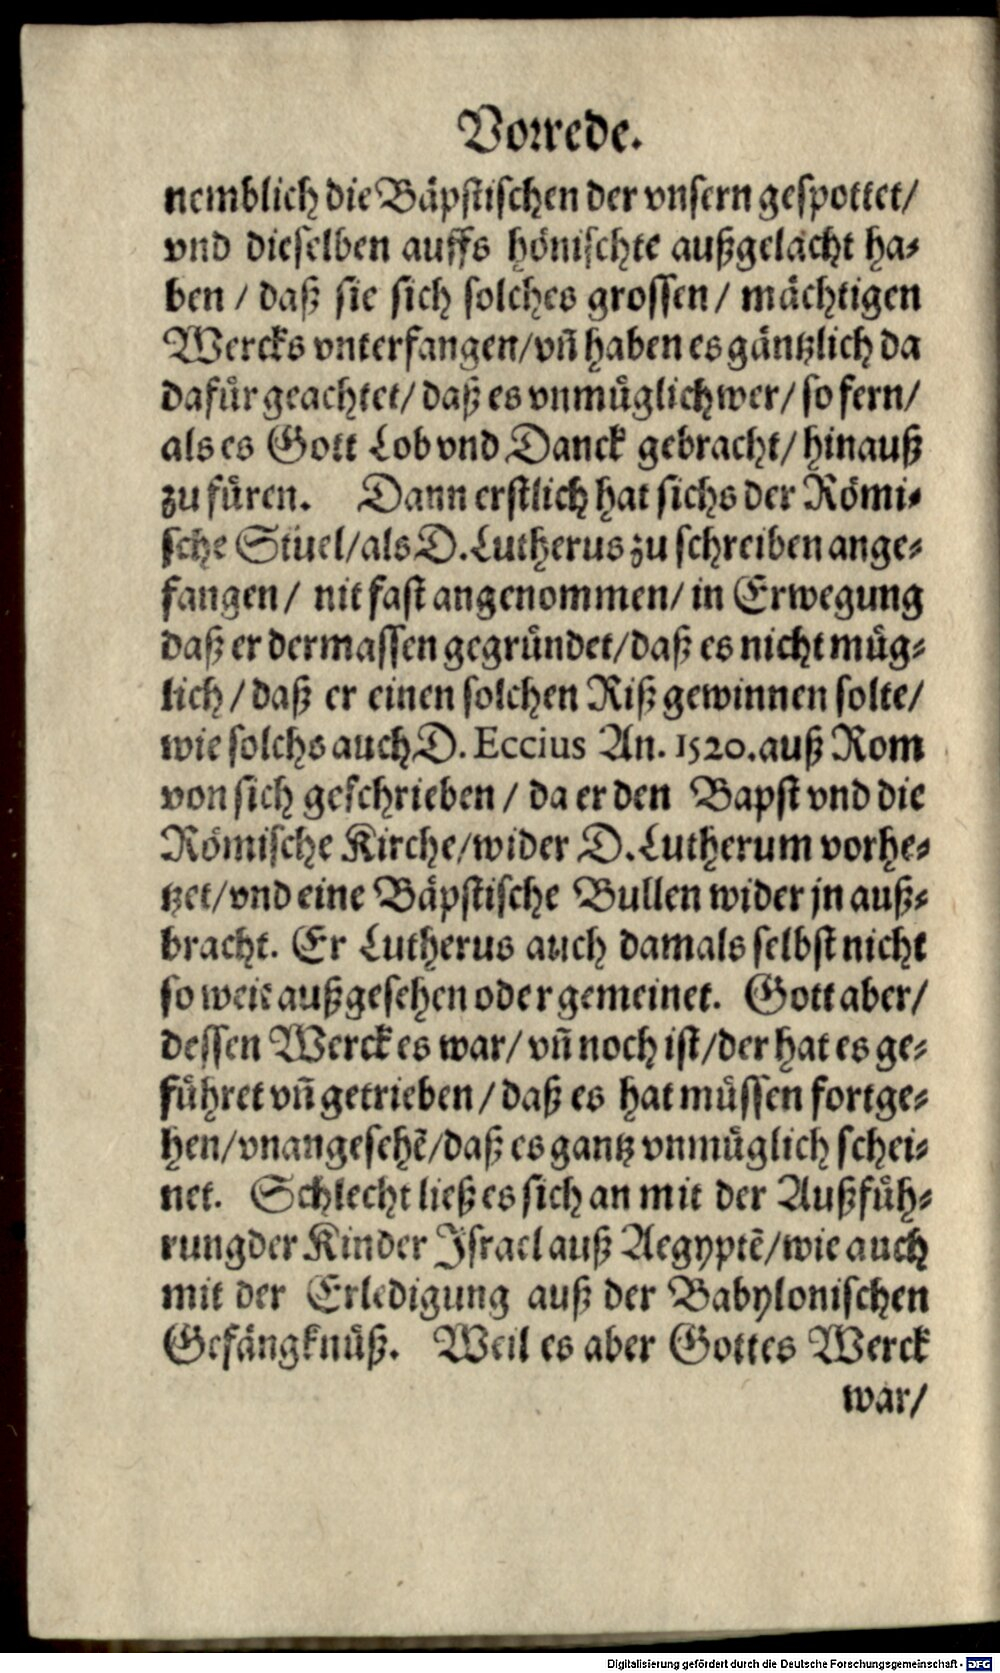 Vorrede.
nemblich die Bäpstischen der vnsern gespottet/
vnd dieselben auffs hönischte außgelacht ha-
ben / daß sie sich solches grossen / mächtigen
Wercks vnterfangen/vñ haben es gäntzlich da
dafür geachtet/ daß es vnmüglich wer/ so fern/
als es Gott Lob vnd Danck gebracht/ hinauß
zu füren. Dann erstlich hat sichs der Römi-
sche Stuel/als D. Lutherus zu schreiben ange-
fangen/ nit fast angenommen/ in Erwegung
daß er dermassen gegründet/daß es nicht müg-
lich / daß er einen solchen Riß gewinnen solte/
wie solchs auch D. Eccius An. 1520. auß Rom
von sich geschrieben / da er den Bapst vnd die
Römische Kirche/wider D. Lutherum vorhe-
tzet/vnd eine Bäpstische Bullen wider jn auß-
bracht. Er Lutherus auch damals selbst nicht
so weit außgesehen oder gemeinet. Gott aber/
dessen Werck es war/ vñ noch ist/der hat es ge-
führet vñ getrieben / daß es hat müssen fortge-
hen/vnangesehẽ/daß es gantz vnmüglich schei-
net. Schlecht ließ es sich an mit der Außfüh-
rung der Kinder Israel auß Aegyptẽ/wie auch
mit der Erledigung auß der Babylonischen
Gefängknüß. Weil es aber Gottes Werck
war/
Digitalisierung gefördert durch die Deutsche Forschungsgemeinschaft - DFG